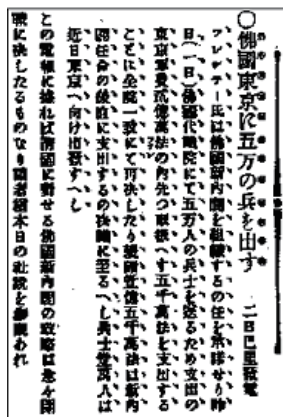 〇佛國東京に五万の兵を出す 二日巴里發電
フレシナー氏は佛國新内閣を組織するの任を承諾せり昨
日(一日)佛國代議院にて五万人の兵士を送るため支出の
東京軍費貳億萬法の内先つ取敢へす五千萬法を支出する
ことは全院一致にて可決したり殘額壹億五千萬法は新内
閣任命の後直に支出するの决議に至るへし兵士壹萬人は
近日東京へ向け出發すへし
この電報に據れは清國に對せる佛國新内閣の政略は愈々開
戰に决したるものなり讀者續本日の社説を參觀あれ